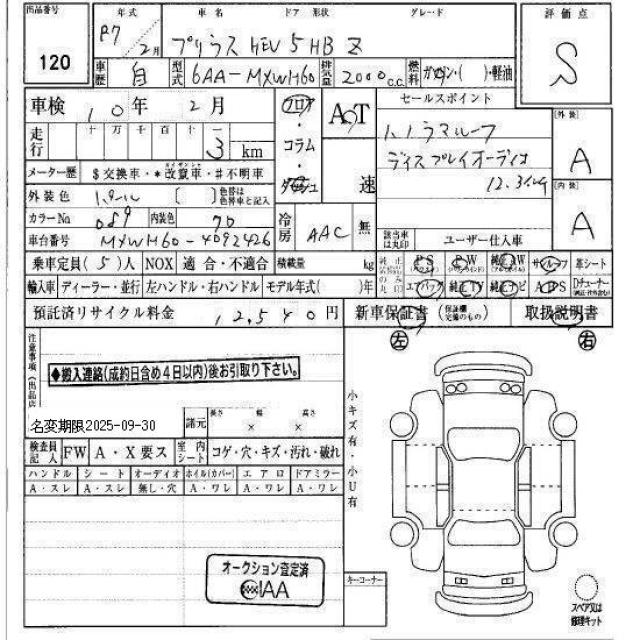 出品番号 120
年式 R7年 2月 車名 プリウス HEV ドア 形状 5 HB グレード Z
評価点 S
車歴 自 型式 6AA-MXWH60 排気量 2000c.c. 燃料 ガソリン・( )・軽油
車検 10年 2月
走行 十 万 千 百 十 一 3 km
メーター歴 $交換車・*改竄車・#不明車
フロア・コラム・
AT 速
セールスポイント
パノラマルーフ
ディスプレイオーディオ
12.3インチ
[外装] A
[内装] A
外装色 パール [ ] 色替は色替車と記入
カラーNo 089 内装色 70
冷房 AAC 無
車台番号 MXWH60-4092426
該当車は丸印 ユーザー仕入車
乗車定員(5)人 NOX 適合・不適合 積載量 kg
純正のみ丸印 PS PW 純正AW サンルーフ 革シート
輸入車 ディーラー・並行 左ハンドル・右ハンドル モデル年式( )年
エアバッグ 純正TV 純正ナビ ABS Dチューナー
預託済リサイクル料金 12,540円 新車保証書 (保証欄完備のもの) 取扱説明書
左 右
注意事項(出品店
◆搬入連絡(成約日含め4日以内)後お引取り下さい。
名変期限2025-09-30
諸元 長さ × 幅 × 高さ
検査員記入 FW A・X要ス 室内シート コゲ・穴・キズ・汚れ・破れ
ハンドル シート オーディオ ホイル(カバー) エアロ ドアミラー
A・スレ A・スレ 無し・穴 A・ワレ A・ワレ A・ワレ
小キズ有・小U有
オークション査定済
IAA
キーコーナー
スペア又は
修理キット